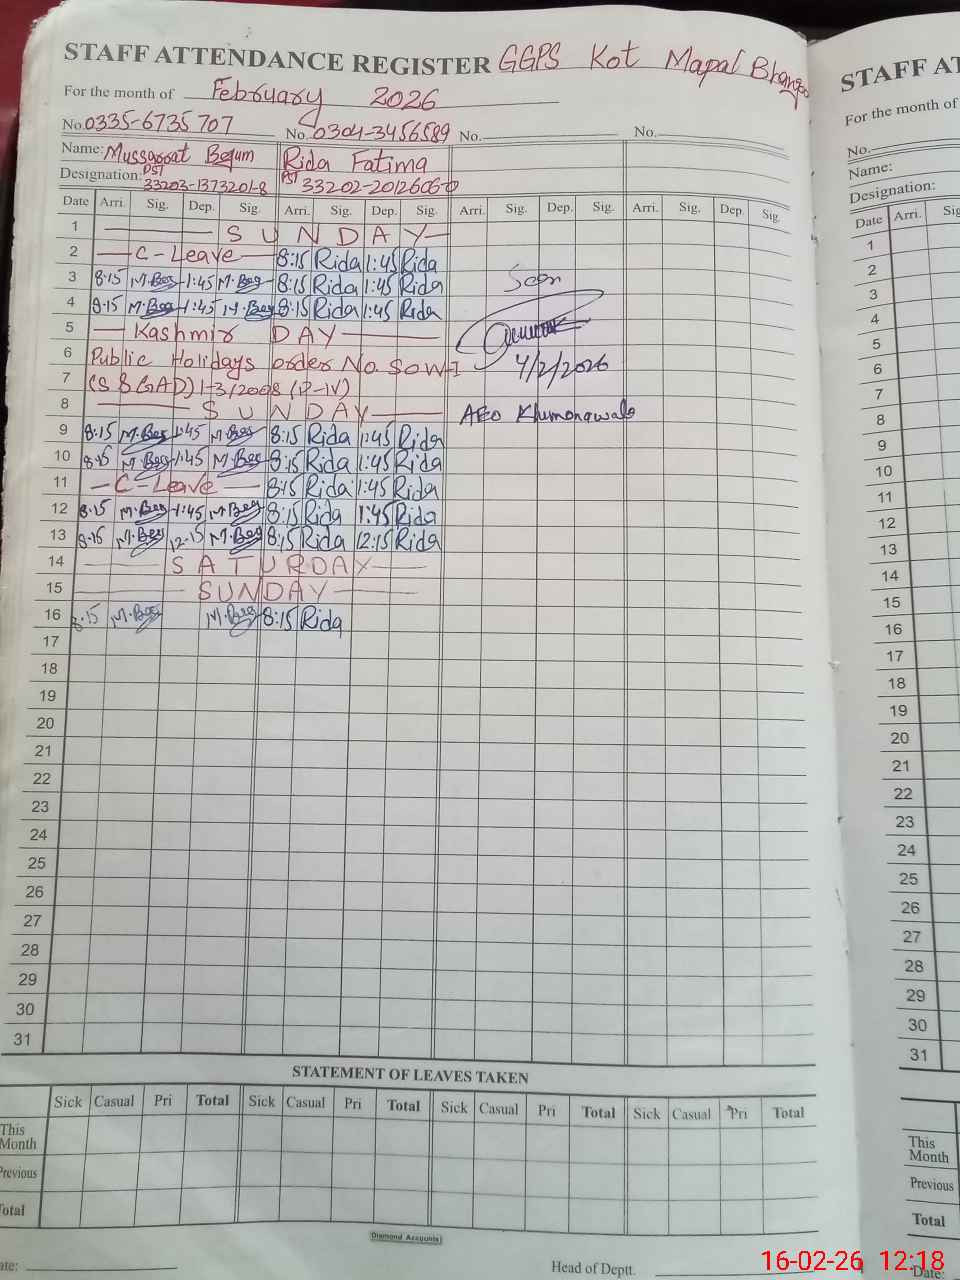 STAFF ATTENDANCE REGISTER GGPS Kot Mapal Bhangoo
For the month of February 2026
No. 0335-6735707 No. 0304-3456589 No. No.
Name: Mussarrat Begum Rida Fatima
Designation: PST 33203-1373201-8 PST 33202-2012606-0
Date Arri. Sig. Dep. Sig. Arri. Sig. Dep. Sig. Arri. Sig. Dep. Sig. Arri. Sig. Dep. Sig.
1 SUNDAY
2 C-Leave 8:15 Rida 1:45 Rida
3 8:15 M.Beg 1:45 M.Beg 8:15 Rida 1:45 Rida Seen
4 8:15 M.Beg 1:45 M.Beg 8:15 Rida 1:45 Rida
5 Kashmir DAY
6 Public Holidays order No. SOWI 4/2/2026
7 (S&GAD) 1-3/2008 (P-IV)
8 SUNDAY AEO
9 8:15 M.Beg 1:45 M.Beg 8:15 Rida 1:45 Rida
10 8:15 M.Beg 1:45 M.Beg 8:15 Rida 1:45 Rida
11 C-Leave 8:15 Rida 1:45 Rida
12 8:15 M.Beg 1:45 M.Beg 8:15 Rida 1:45 Rida
13 8:15 M.Beg 12:15 M.Beg 8:15 Rida 12:15 Rida
14 SATURDAY
15 SUNDAY
16 8:15 M.Beg M.Beg 8:15 Rida
17
18
19
20
21
22
23
24
25
26
27
28
29
30
31
STATEMENT OF LEAVES TAKEN
Sick Casual Pri Total Sick Casual Pri Total Sick Casual Pri Total Sick Casual Pri Total
This Month
Previous
Total
Diamond Accounts
Head of Deptt.
STAFF AT
For the month of
No.
Name:
Designation:
Date Arri. Sig
1
2
3
4
5
6
7
8
9
10
11
12
13
14
15
16
17
18
19
20
21
22
23
24
25
26
27
28
29
30
31
This Month
Previous
Total
Date:
16-02-26 12:18